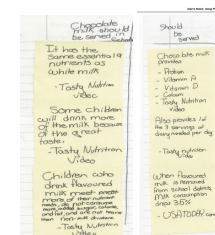 Chocolate
milk should
be served in
It has the
same essential 9
nutrients as
white milk
- Tasty Nutrition
Video
Some children
will drink more
of the milk because
of the great
taste.
- Tasty Nutrition
Video
Children who
drink flavoured
milk meet more
of their nutrient
needs, do not consume
more added sugar, calories
and fat, and are not heavier
than non-milk drinkers
- Tasty Nutrition
Video
Should
be
served
Chocolate milk
provides
- Protein
- Vitamin A
- Vitamin D
- Calcium
- Tasty Nutrition
Video
Also provides 1 of
the 3 servings of
dairy needed
- Tasty nutrition
Video
When flavoured
milk is removed
from school districts
milk consumption
drops 35%
- USA TODAY